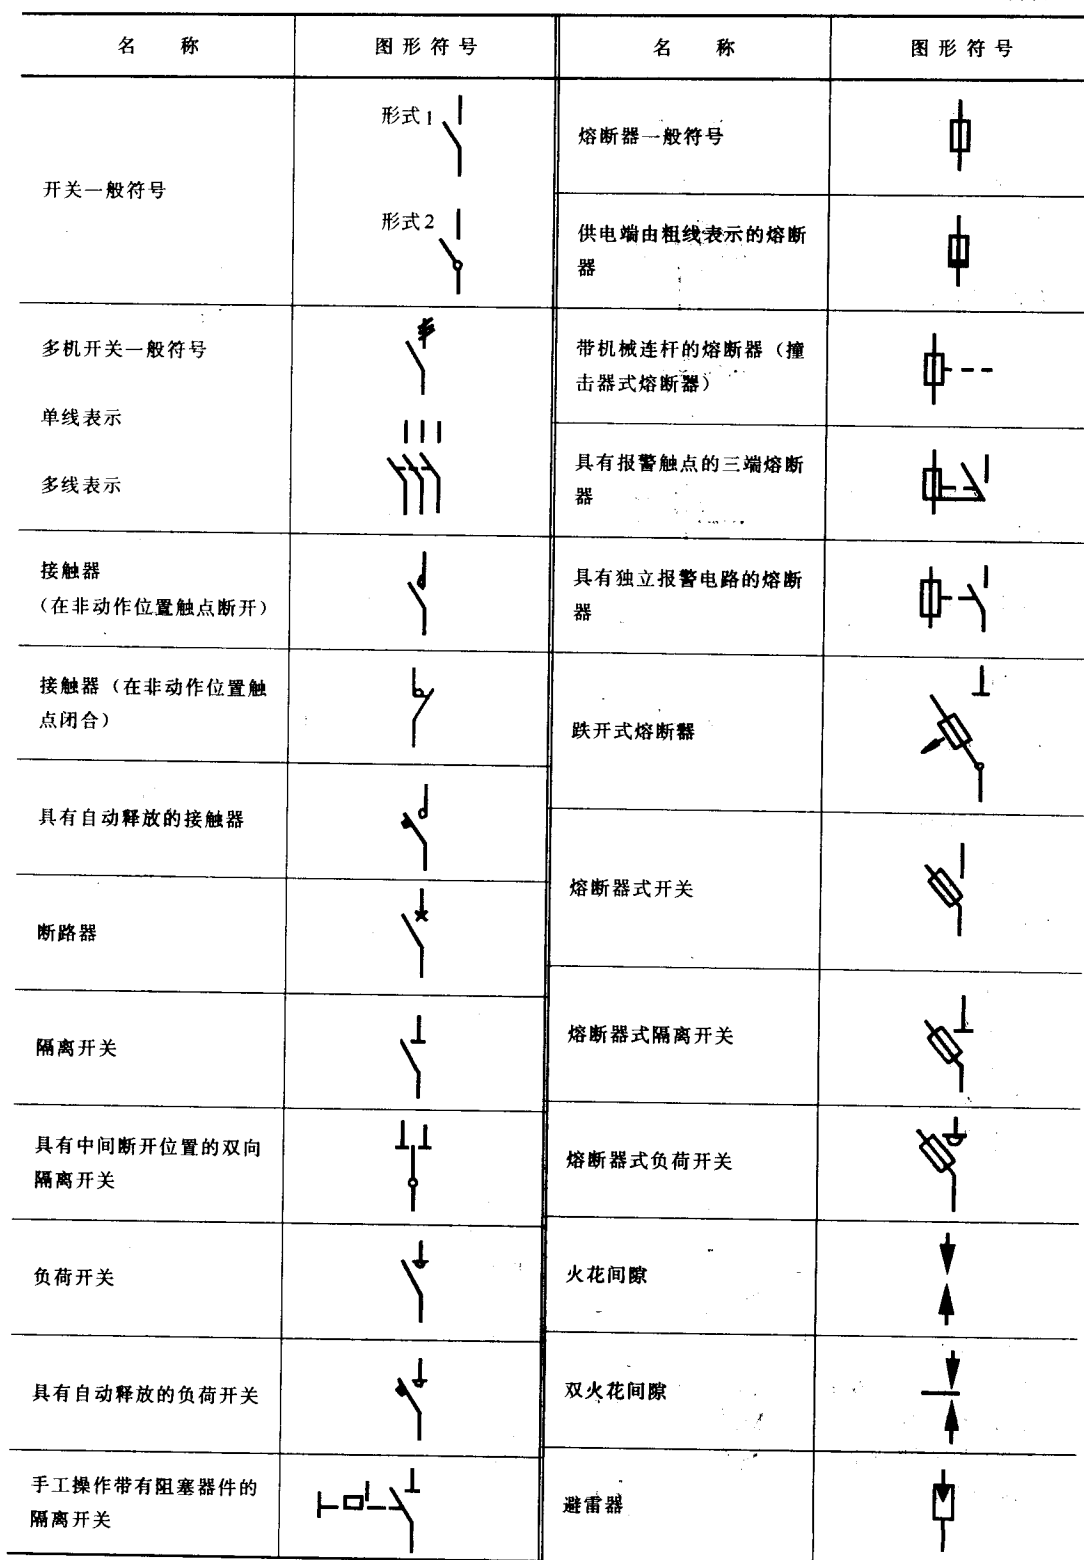 名 称
图形符号
名 称
图形符号
开关一般符号
形式1
形式2
多机开关一般符号
单线表示
多线表示
接触器
（在非动作位置触点断开）
接触器（在非动作位置触
点闭合）
具有自动释放的接触器
断路器
隔离开关
具有中间断开位置的双向
隔离开关
负荷开关
具有自动释放的负荷开关
手工操作带有阻塞器件的
隔离开关
熔断器一般符号
供电端由粗线表示的熔断
器
带机械连杆的熔断器（撞
击器式熔断器）
具有报警触点的三端熔断
器
具有独立报警电路的熔断
器
跌开式熔断器
熔断器式开关
熔断器式隔离开关
熔断器式负荷开关
火花间隙
双火花间隙
避雷器